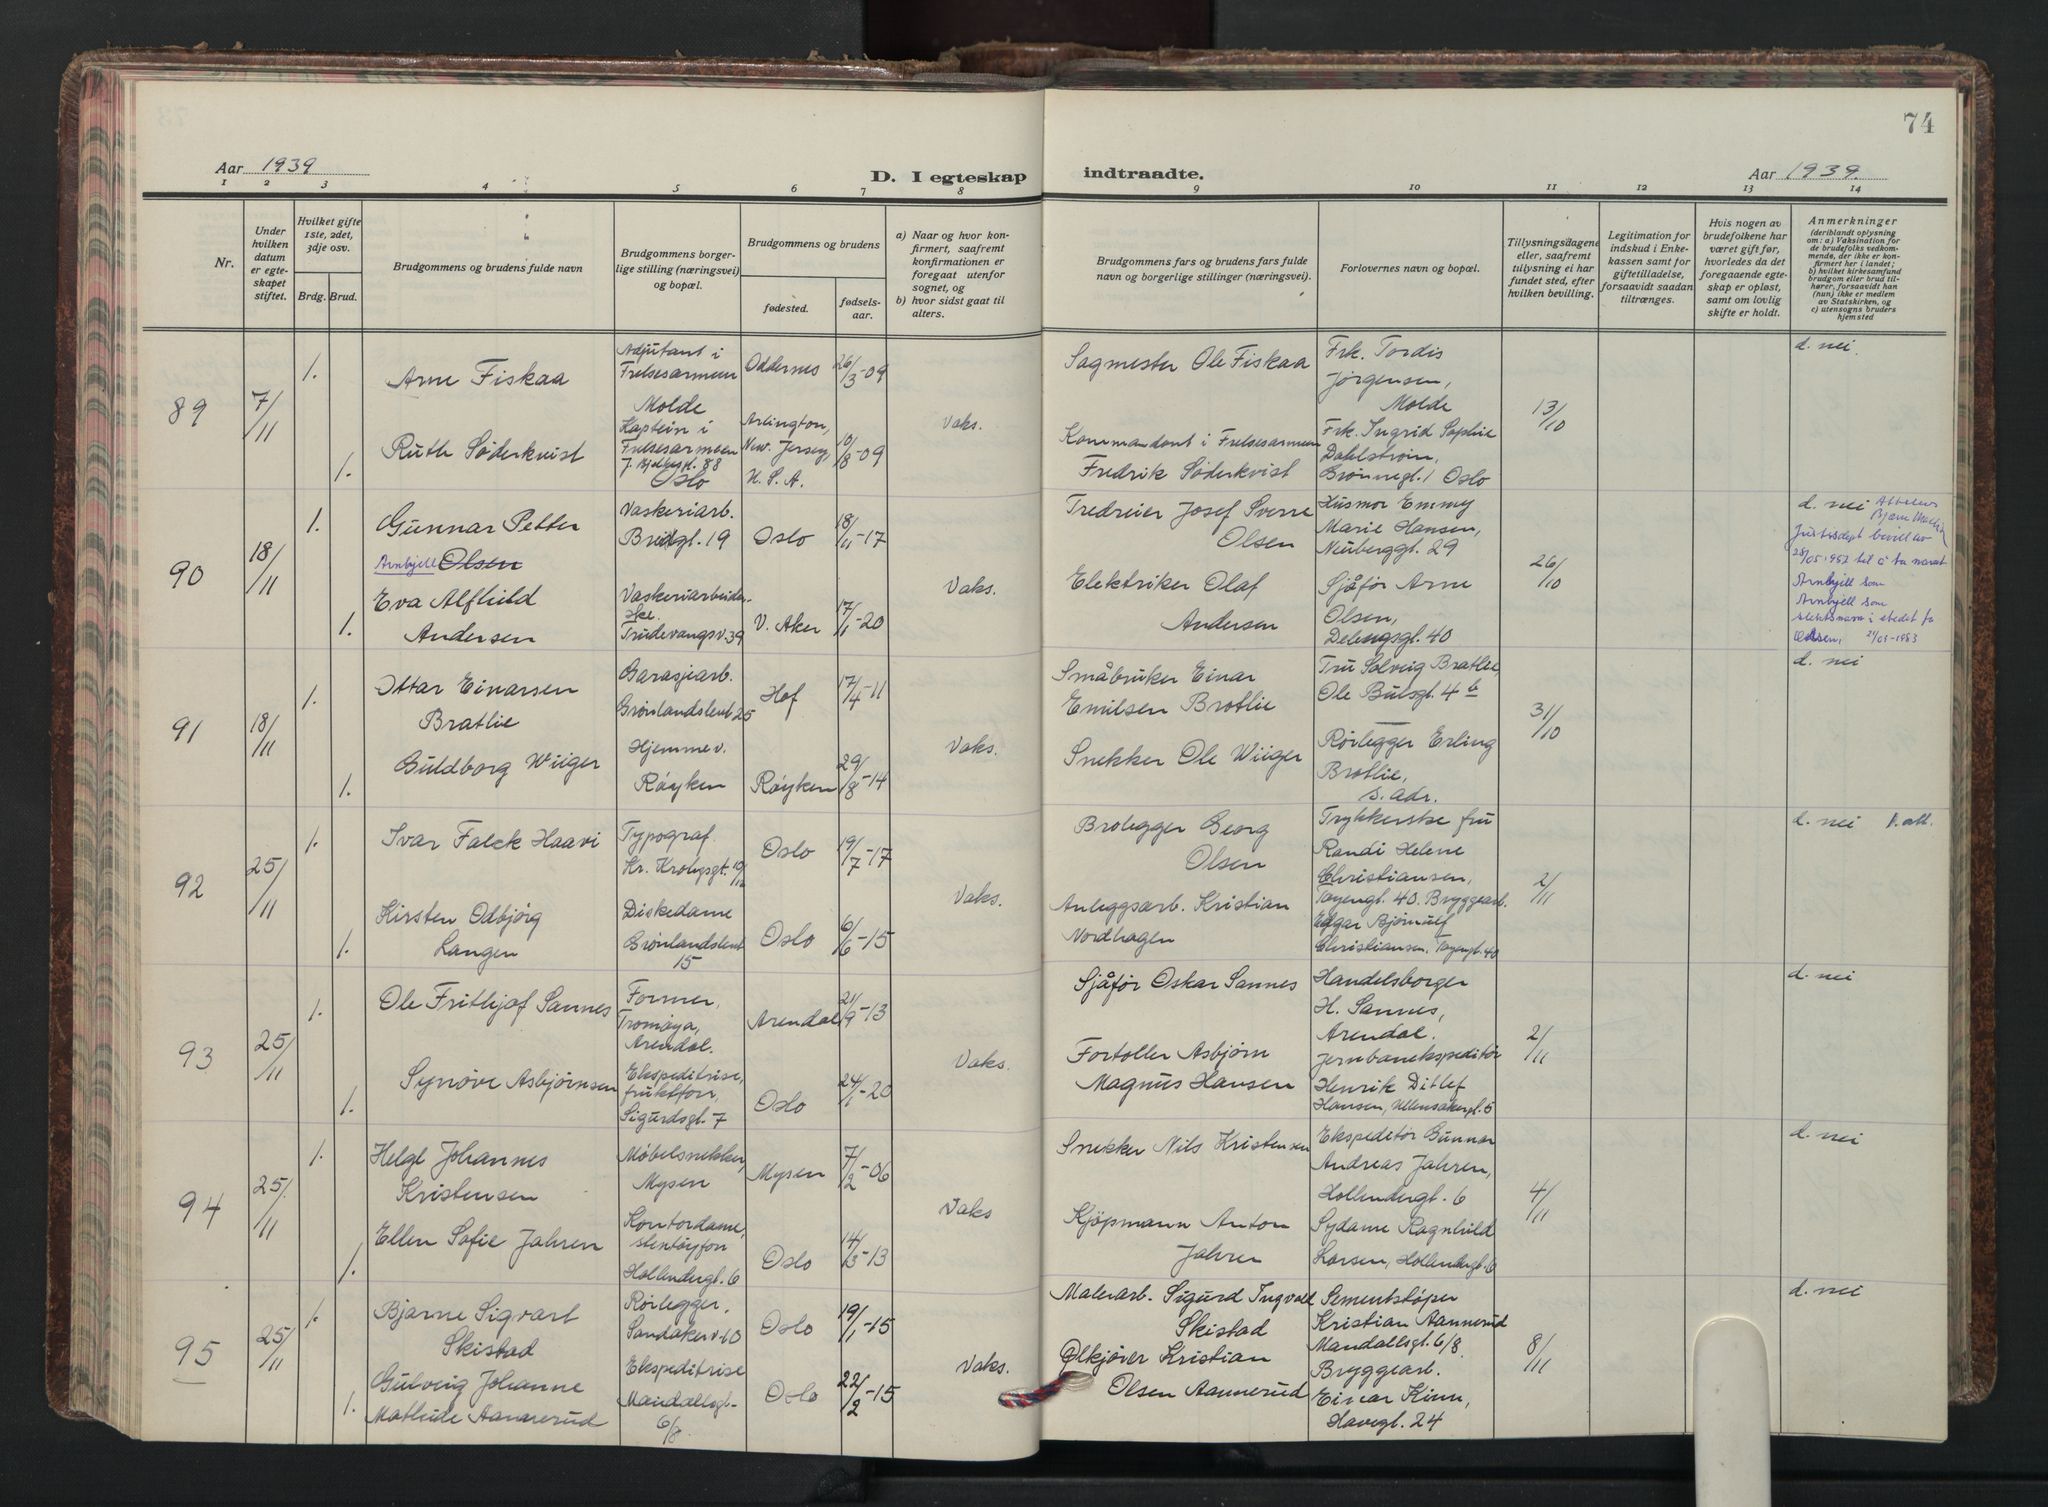 74
Aar 1939
D. I egteskap indtraadte.
Aar 1939.
1 2 3 4 5 6 7 8 9 10 11 12 13 14
Nr.
Under hvilken datum er egteskapet stiftet.
Hvilket gifte 1ste, 2det, 3dje osv.
Brdg. Brud.
Brudgommens og brudens fulde navn
Brudgommens borgerlige stilling (næringsvei) og bopæl.
Brudgommens og brudens
fødested. fødselsaar.
a) Naar og hvor konfirmert, saafremt konfirmationen er foregaat utenfor sognet, og
b) hvor sidst gaat til alters.
Brudgommens fars og brudens fars fulde navn og borgerlige stillinger (næringsvei).
Forlovernes navn og bopæl.
Tillysningsdagene eller, saafremt tillysning ei har fundet sted, efter hvilken bevilling.
Legitimation for indskud i Enkekassen samt for giftetilladelse, forsaavidt saadan tiltrænges.
Hvis nogen av brudefolkene har været gift før, hvorledes da det foregaaende egteskap er opløst, samt om lovlig skifte er holdt.
Anmerkninger (deriblandt oplysning om: a) Vaksination for de brudefolks vedkommende, der ikke er konfirmert her i landet; b) hvilket kirkesamfund brudgom eller brud tilhører, forsaavidt han (hun) ikke er medlem av Statskirken, og c) utensogns bruders hjemsted
89
7/11
1.
Arne Fiskaa
Adjutant i
Frelsesarmeen
Molde
Oddernes
26/3-09
Vaks.
Sagmester Ole Fiskaa
Frk. Tordis
Jørgensen,
Molde
13/10
d. nei.
1.
Ruth Søderkvist
Kaptein i
Frelsesarmeen
88
Oslo
Arlington,
New. Jersey
U. S. A.
10/8-09
Kommandant i Frelsesarmeen
Fredrik Søderkvist
Frk. Ingrid Sophie
Dahlstrøm,
Brønnegt. 1 Oslo
90
18/11
1.
Gunnar Petter
Arnbjell Olsen
Vaskeriarb.
Bredgt. 19
Oslo
18/11-17
Vaks.
Tredreier Josef Sverre
Olsen
Husmor Emmy
Marie Hansen,
Neuberggt. 29
26/10
d. nei
Justisdept bevill av
Arnbjell som
Arnbjell som
slektsnavn i stedet for
Olsen,
1.
Eva Alfhild
Andersen
Vaskeriarbeiderske.
Trudevangsv. 39
V. Aker
17/1-20
Elektriker Olaf
Andersen
Sjåfør Arne
Olsen,
Delengsgt. 40
91
18/11
1.
Ottar Einarsen
Bratlie
Garasjearb.
Grønlandsleret 25
Hof
17/4-11
Vaks.
Småbruker Einar
Emilsen Bratlie
Fru Solveig Bratlie,
Ole Bulsgt. 4 b
31/10
d. nei
1.
Guldborg Wiiger
Hjemmev.
Røyken
Røyken
29/8-14
Snekker Ole Wiiger
Rørlegger Erling
Bratlie,
s. adr.
92
25/11
1.
Ivar Falck Haavi
Typograf
Kr. Krohgsgt. 19/12
Oslo
19/7-17
Vaks.
Brolegger Georg
Olsen
Trykkerske fru
Randi Helene
Christiansen,
Tøyengt. 40. Bryggearb.
2/11
d. nei
1.
Kirsten Odbjørg
Langen
Diskedame
Grønlandsleret
15
Oslo
6/6-15
Anleggsarb. Kristian
Nordhagen
Edgar Bjørnulf
Christiansen, Tøyengt. 40
93
25/11
1.
Ole Frithjof Sannes
Former,
Tromøya,
Arendal.
Arendal
21/9-13
Vaks.
Sjåfør Oskar Sannes
Handelsborger
H. Sannes,
Arendal.
2/11
d. nei
1.
Synøve Asbjørnsen
Ekspeditrise,
fruktforr.,
Sigurdsgt. 7
Oslo
24/1-20
Fortoller Asbjørn
Magnus Hansen
Jernbaneekspeditør
Henrik Ditlef
Hansen, Ullensakergt. 5
94
25/11
1.
Helge Johannes
Kristensen
Møbelsnekker,
Mysen
Mysen
7/2-06
Vaks
Snekker Nils Kristensen
Ekspeditør Gunnar
Andreas Jahren,
Hollendergt. 6
4/11
d. nei
1.
Ellen Sofie Jahren
Kontordame,
stentøyforr
Hollendergt. 6
Oslo
14/3-13
Kjøpmann Anton
Jahren
Sydame Ragnhild
Larsen, Hollendergt. 6
95
25/11
1.
Bjarne Sigvart
Skistad
Rørlegger,
Sandakerv. 10
Oslo
19/1-15
Vaks.
Malerarb. Sigurd Ingvald
Skistad
Sementstøper
Kristian Aannerud
Mandallsgt. 6/8.
8/11
d. nei
1.
Gulveig Johanne
Mathilde Aannerud
Ekspeditrise
Mandallsgt.
6/8
Oslo
22/2-15
Ølkjører Kristian
Olsen Aannerud
Bryggearb.
Einar Kinn,
Havegt. 24